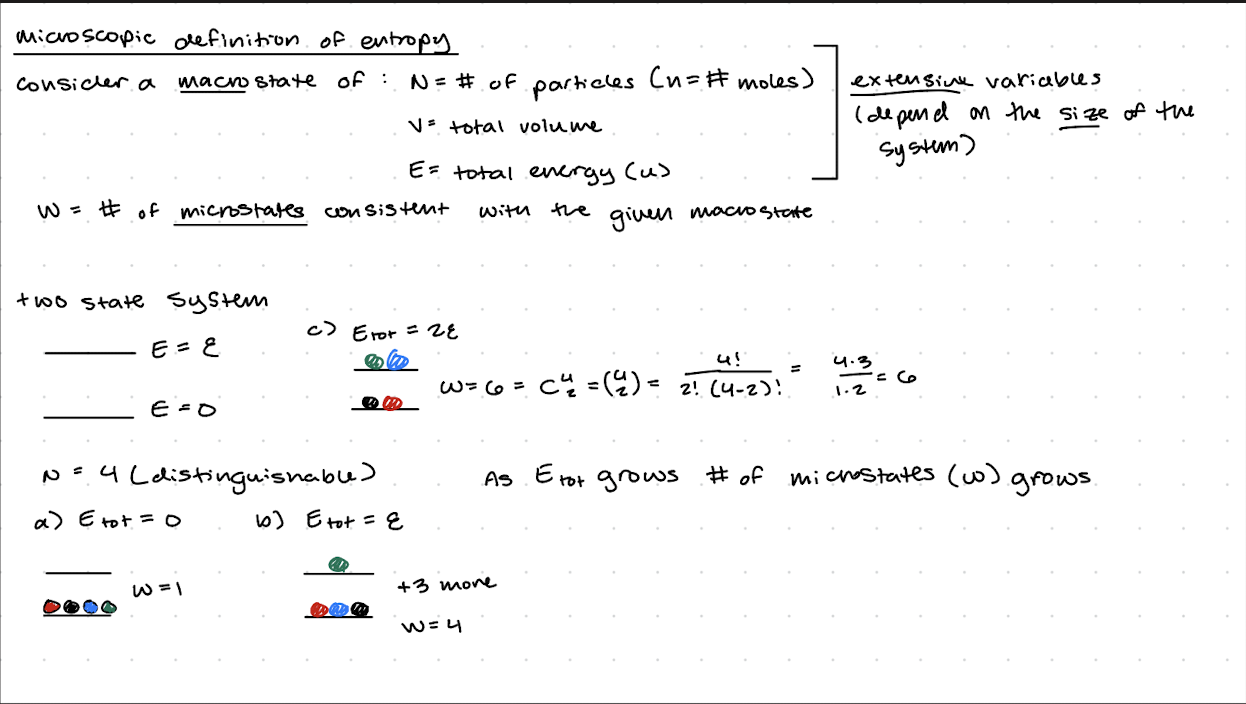 microscopic definition of entropy
consider a macrostate of : N = # of particles (n = # moles)
V = total volume
E = total energy (u)
extensive variables
(depend on the size of the
system)
W = # of microstates consistent with the given macrostate
two state system
E = ε
E = 0
c) E_tot = 2ε
W = 6 = C^4_2 = (4 2) = 4! / 2! (4-2)! = 4·3 / 1·2 = 6
N = 4 (distinguishable)
As E_tot grows # of microstates (w) grows
a) E_tot = 0
W = 1
b) E_tot = ε
+3 more
W = 4